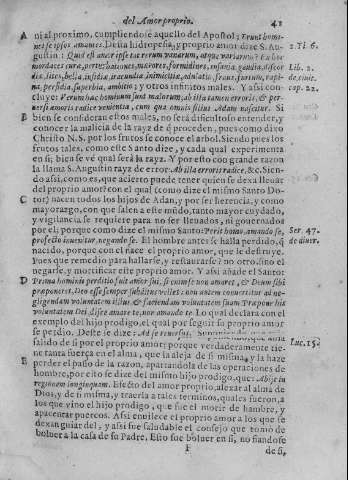 del Amor proprio. 41
A ni al proximo, cumpliendose aquello del Apostol; Erunt homi-
nes se ipsos amantes. Desta hidropesia, y proprio amor dize S. Au- 2. Ti. 6.
gustin: Quid est amor ipse tac rerum vanarum, atque variarum? Ex hoc
mordaces curæ, perturbationes, mærores, formidines, insania gaudia, discor Lib. 2.
diæ, lites, bella, insidiæ, iracundiæ, inimicitiæ, adulatio, fraus, furtum, rapi- de civit.
na, perfidia, superbia, ambitio; y otros infinitos males. Y asi con- cap. 22.
cluye: Verum hæc hominum sunt malorum, ab illo tamen erroris, & per
versi amoris radice venientia, cum qua omnis filius Adam nascitur. Si
B bien se consideran estos males, no será dificultoso entender, y
conocer la malicia de la rayz de q̃ proceden, pues como dixo
Christo N. S. por los frutos se conoce el arbol. Siendo pues los
frutos tales, como este Santo dize, y cada qual experimenta
en si; bien se vé qual será la rayz. Y por esto con grande razon
la llama S. Augustin rayz de error: Ab illa erroris radice, &c. Sien-
do assi, como es, que acierto puede tener quien se dexa lleuar
del proprio amor? con el qual (como dize el mismo Santo Do-
C tor) nacen todos los hijos de Adan, y por ser herencia, y como
mayorazgo, con que salen a este mũdo, tanto mayor cuydado,
y vigilancia se requiere para no ser lleuados, ni gouernados
por el; porque como dize el mismo Santo: Perit homo, amando se, Ser. 47.
profecto inuenitur, negando se. El hombre antes se halla perdido, q̃ de diuer.
nacido, porque con el nace el proprio amor, que le destruye.
Pues que remedio para hallarse, y restaurarse? no otro, sino el
negarse, y mortificar este proprio amor. Y assi añade el Santo:
D Prima hominis perditio fuit amor sui, si enim se non amaret, & Deum sibi
præponeret, Deo esse semper subditus vellet: non autem conuertitur ad ne-
gligendam voluntatem illius & faciendam voluntatem suam Præpone his
voluntatem Dei, disce amare te, non amando te. Lo qual declara con el
exemplo del hijo prodigo, el qual por seguir su proprio amor
se perdio. Deste le dize:
salido de si por el proprio amor; porque verdaderamente tie- Luc. 15.
ne tanta fuerça en el alma, que la aleja de si misma, y la haze
B perder el passo de la razon, apartandola de las operaciones de
hombre, por esto se dize del mismo hijo prodigo, que: Abijt in
regionem longinquam. Efecto del amor proprio, alexar al alma de
Dios, y de si misma, y traerla a tales terminos, quales fueron, a
los que vino el hijo prodigo, que fue el morir de hambre, y
apacentar puercos. Assi enuilece el proprio amor a los que se
dexan guiar del, y assi fue saludable el consejo que tomo de
boluer a la casa de su Padre. Esto fue boluer en si, no fiandose
F de si,